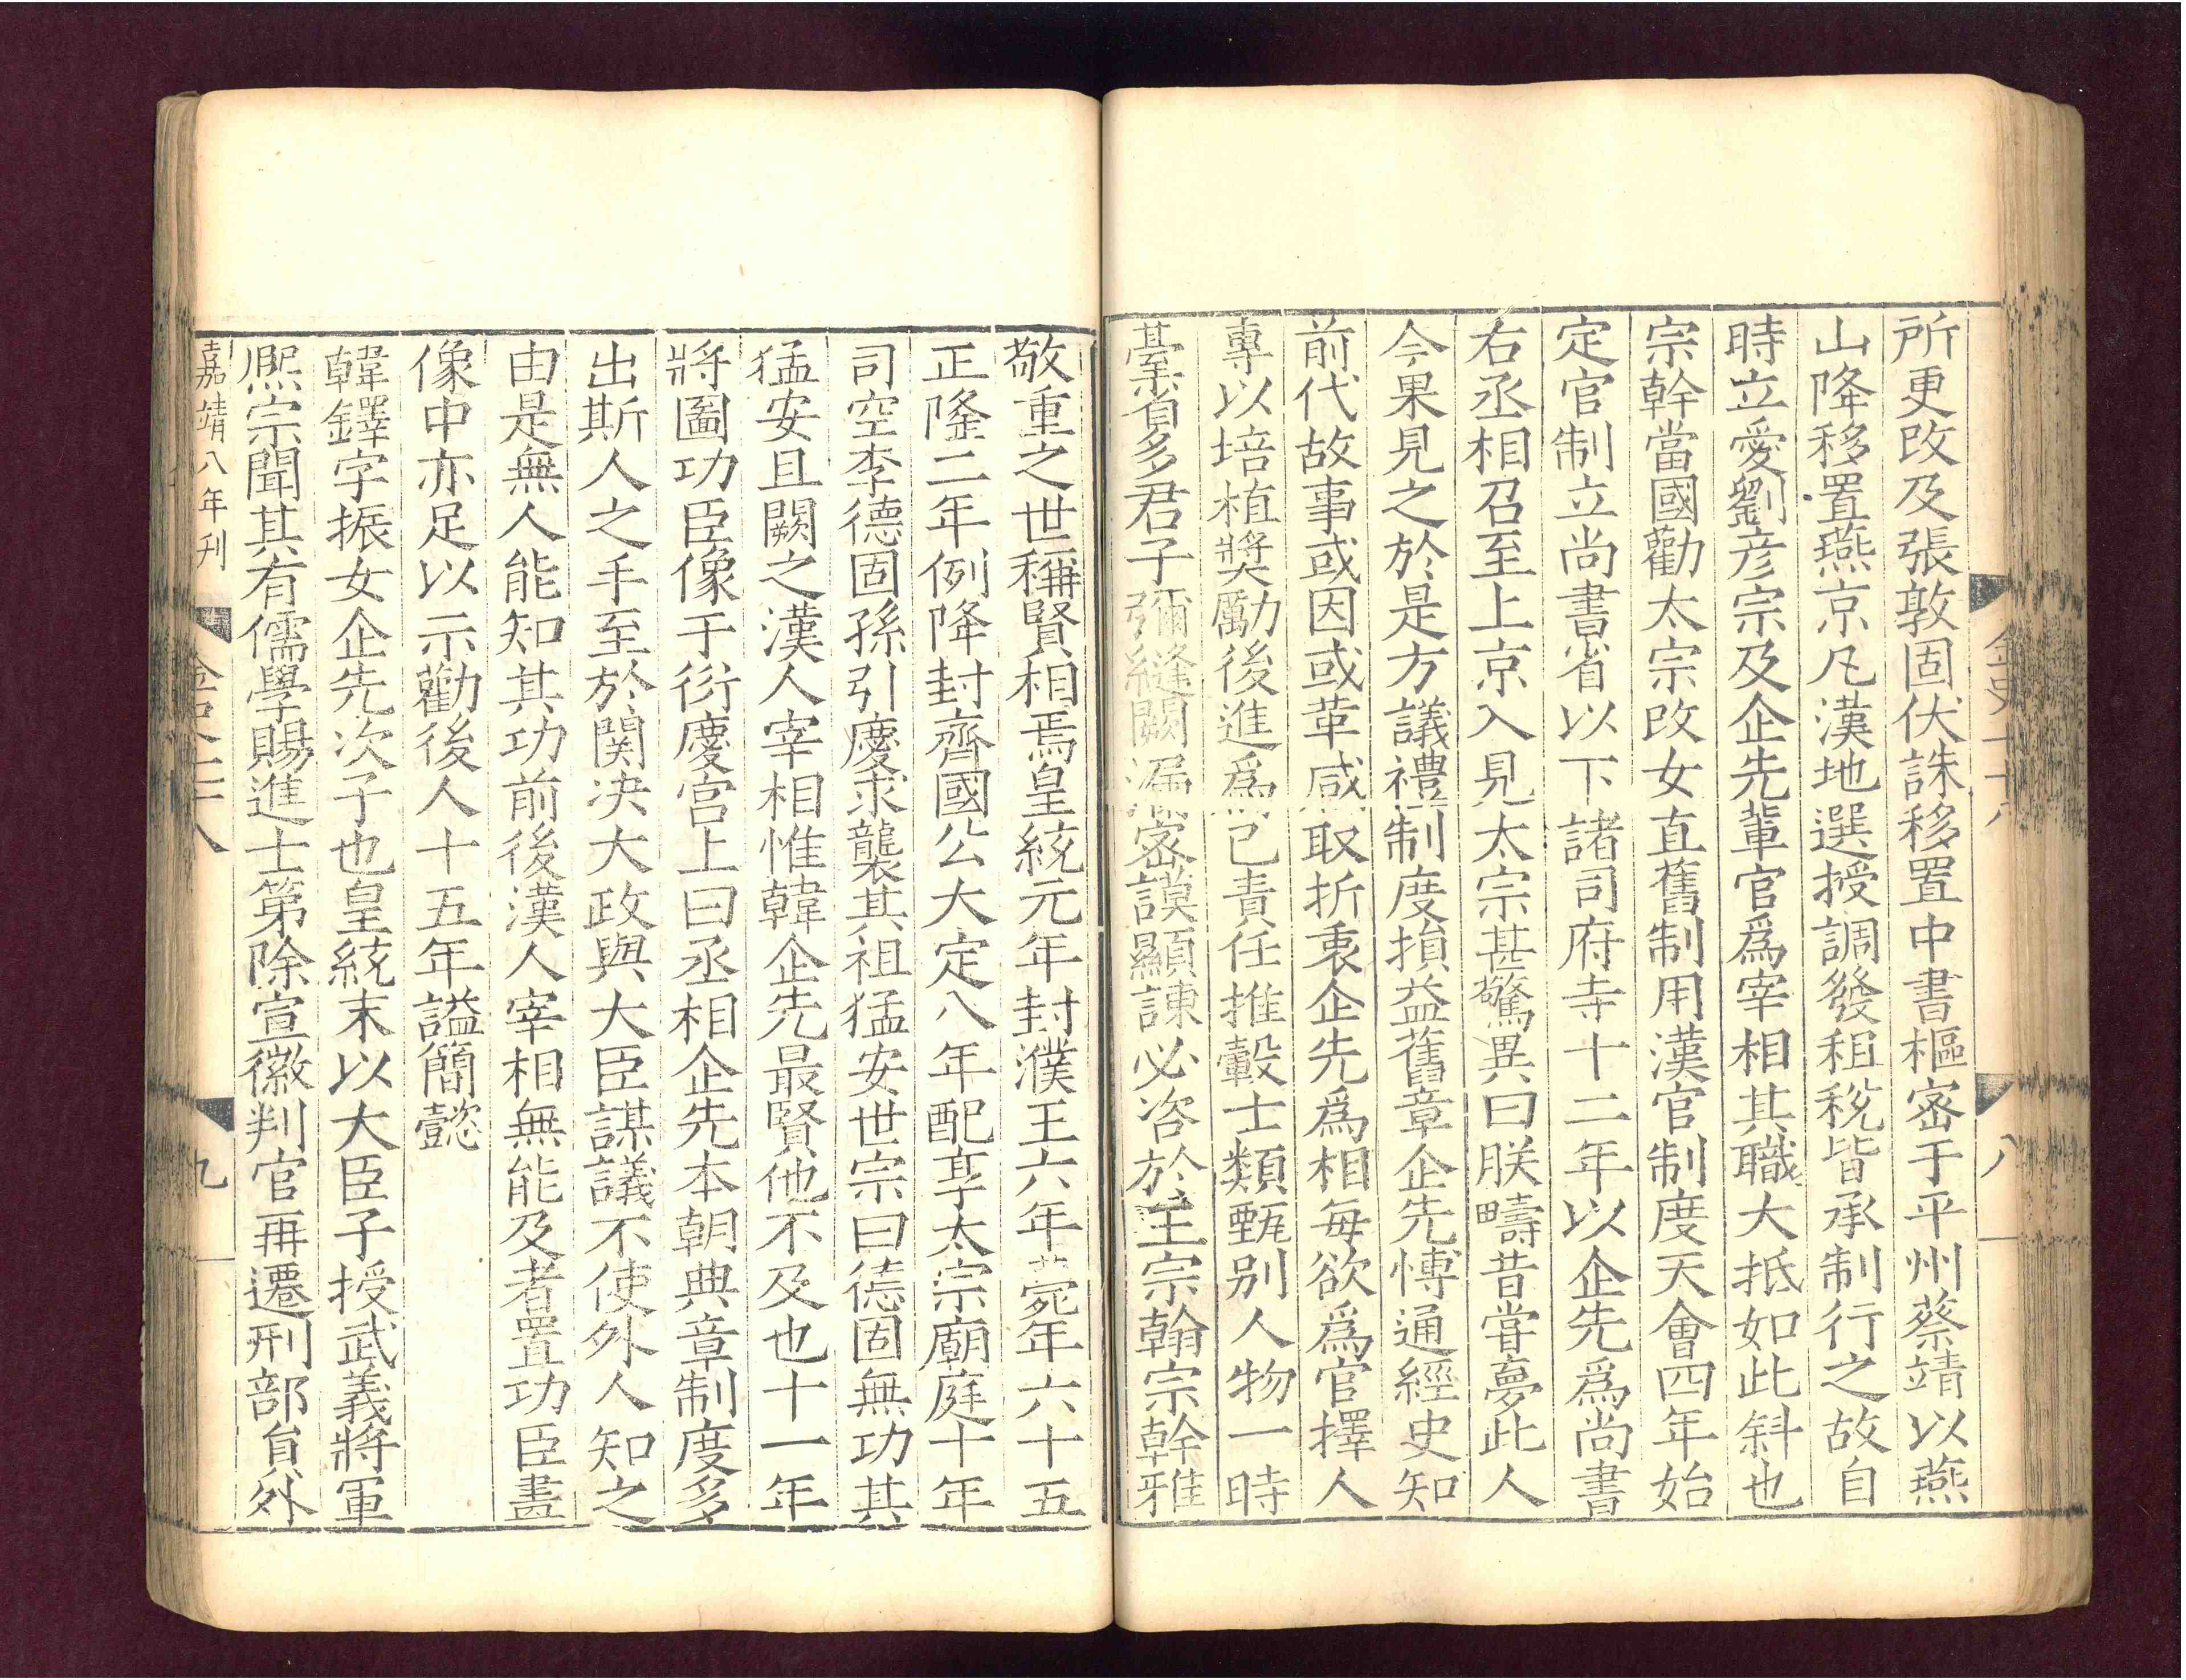 所更改及張敦固伏誅移置中書樞密于平州蔡靖以燕
山降移置燕京凡漢地選授調發租稅皆承制行之故自
時立愛劉彦宗及企先輩官爲宰相其職大抵如此斜也
宗幹當國勸太宗改女直舊制用漢官制度天會四年始
定官制立尚書省以下諸司府寺十二年以企先爲尚書
右丞相召至上京入見太宗甚驚異曰朕疇昔甞夢此人
今果見之於是方議禮制度損益舊章企先愽通經史知
前代故事或因或革咸取折衷企先爲相每欲爲官擇人
專以培植獎勵後進爲己責任推轂士類甄别人物一時
臺省多君子彌縫闕漏密謨顯諫必咨於王宗翰宗幹雅
敬重之世稱賢相焉皇統元年封濮王六年薨年六十五
正隆二年例降封齊國公大定八年配享太宗廟庭十年
司空李德固孫引慶求襲其祖猛安世宗曰德固無功其
猛安且闕之漢人宰相惟韓企先最賢他不及也十一年
將圖功臣像于衍慶宫上曰丞相企先本朝典章制度多
出斯人之手至於関决大政與大臣謀議不使外人知之
由是無人能知其功前後漢人宰相無能及者置功臣畫
像中亦足以示勸後人十五年謚簡懿
韓鐸字振女企先次子也皇統末以大臣子授武義將軍
熈宗聞其有儒學賜進士第除宣徽判官再遷刑部貟外
嘉靖八年刋
九
八